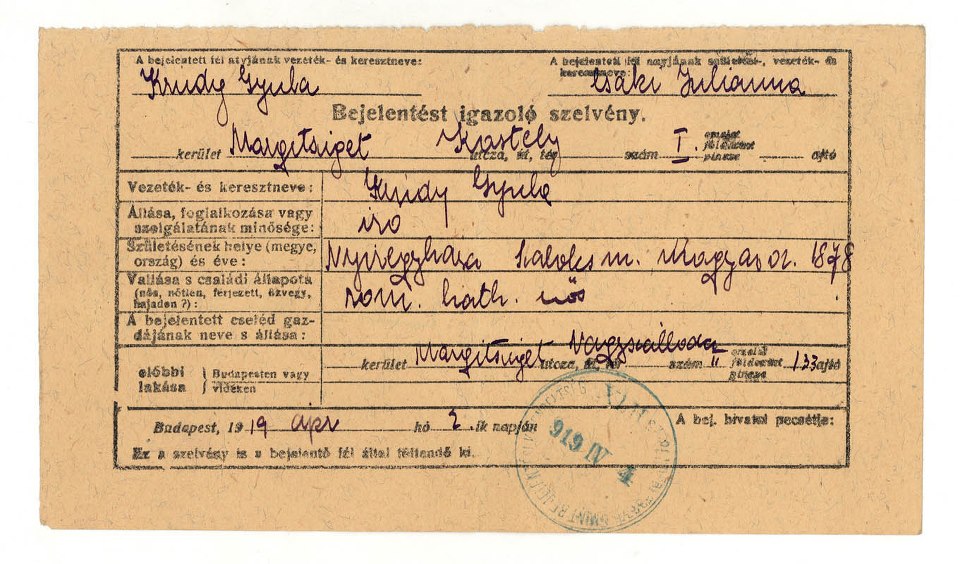 A bejelentett fél atyjának vezeték- és keresztneve: A bejelentett fél anyjának születési-, vezeték- és keresztneve:
Krudy Gyula Csáki Julianna
Bejelentést igazoló szelvény.
kerület Margitsziget Kastély utcza, út, tér szám I. emelet földszint pincze ajtó
Vezeték- és keresztneve: Krúdy Gyula
Állása, foglalkozása vagy szolgálatának minősége: iro
Születésének helye (megye, ország) és éve: Nyiregyháza Szabolcs m. Magyar o. 1878
Vallása s családi állapota (nős, nőtlen, férjezett, özvegy, hajadon?): rom. kath. nős
A bejelentett cseléd gazdájának neve s állása:
előbbi lakása Budapesten vagy vidéken kerület Margitsziget Nagyszálloda utcza, út, tér szám II emelet földszint pincze 133 ajtó
Budapest, 1919 ápr hó 2.-ik napján A bej. hivatal pecsétje:
Ez a szelvény is a bejelentő fél által töltendő ki.
919 IV 4